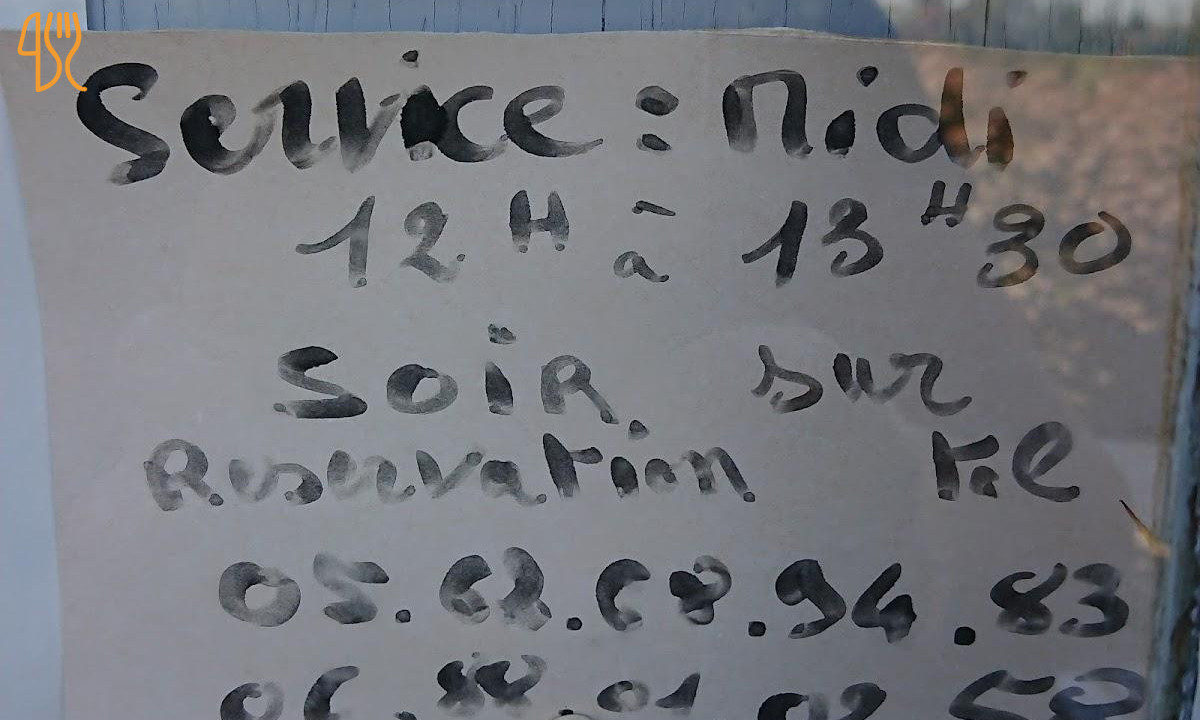 Service : Midi
12H à 13H30
SOIR sur
Reservation Tel
05.62.68.94.83